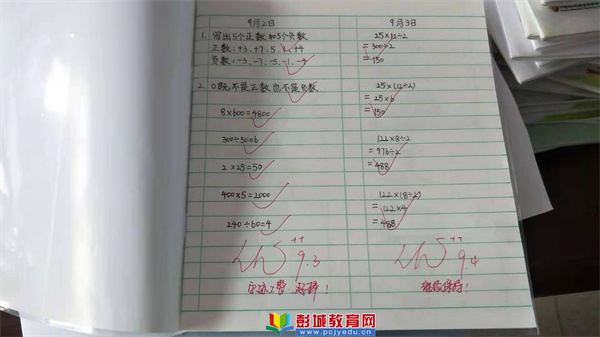 9月2日
1. 写出5个正数和5个负数
正数：+3，+7，5，1，+4
负数：-3，-7，-5，-1，-4
2. 0既不是正数也不是负数
8×600=4800
300÷50=6
2×25=50
400×5=2000
240÷60=4
9.3
9月3日
25×12÷2
=300÷2
=150
25×(12÷2)
=25×6
=150
122×8÷2
=976÷2
=488
122×(8÷2)
=122×4
=488
9.4
继续保持!
彭城教育网
www.pcjyedu.cn